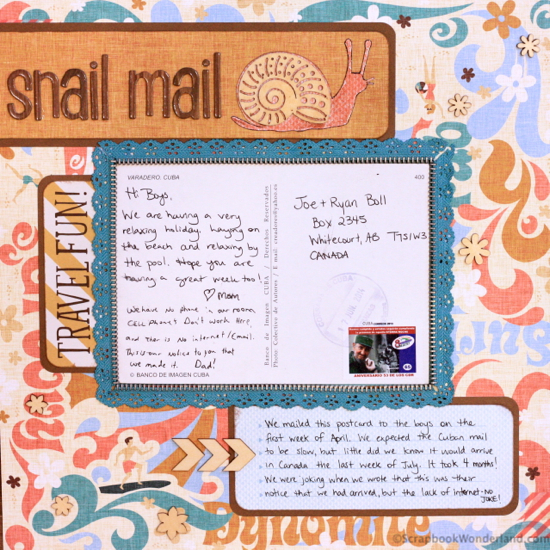 snail mail
TRAVEL FUN!
VARADERO. CUBA
400
Hi Boys,
We are having a very
relaxing holiday. Laying on
the beach and relaxing by
the pool. Hope you are
having a great week too!
♡ Mom
We have no phone in our room,
CELL phones Don't work here,
and there is no internet/Email.
This is our notice to you that
we made it. Dad!
© BANCO DE IMAGEN CUBA
Banco de Imagen CUBA / Derechos Reservados
Photo Colección de Autores / E mail:
Joe + Ryan Ball
Box 2345
Whitecourt, AB T7S1W3
CANADA
We mailed this postcard to the boys on the
first week of April. We expected the Cuban mail
to be slow, but little did we know it would arrive
in Canada the last week of July. It took 4 months!
We were joking when we wrote that this was their
notice that we had arrived, but the lack of internet-NO
JOKE!
Dynomite
©ScrapbookWonderland.com